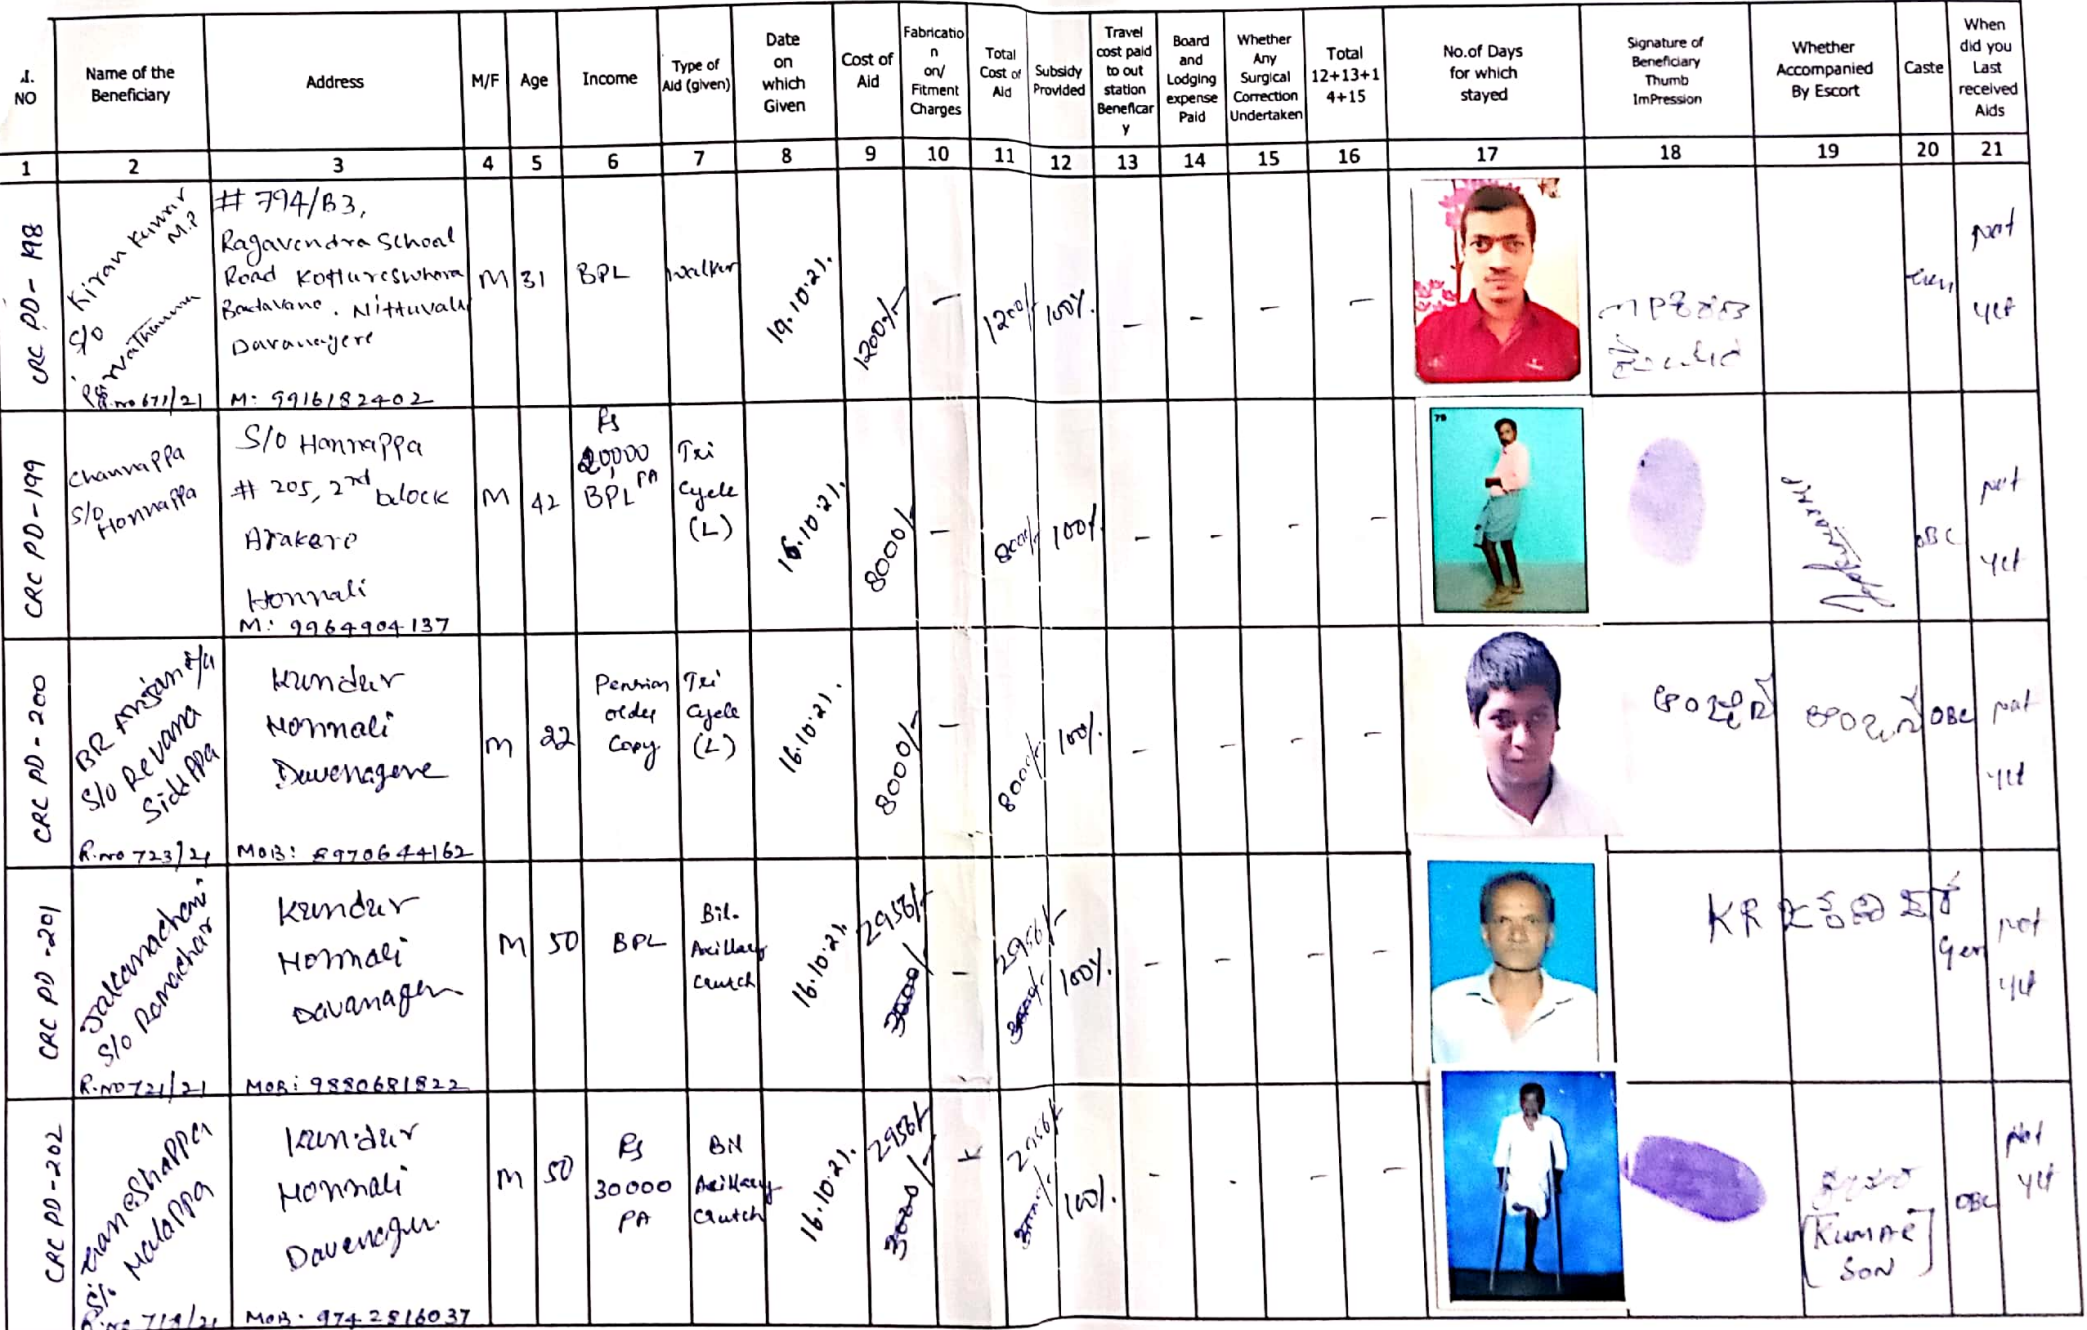 .I. NO
Name of the Beneficiary
Address
M/F
Age
Income
Type of Aid (given)
Date on which Given
Cost of Aid
Fabricatio n on/ Fitment Charges
Total Cost of Aid
Subsidy Provided
Travel cost paid to out station Beneficar y
Board and Lodging expense Paid
Whether Any Surgical Correction Undertaken
Total 12+13+1 4+15
No.of Days for which stayed
Signature of Beneficiary Thumb ImPression
Whether Accompanied By Escort
Caste
When did you Last received Aids
1 2 3 4 5 6 7 8 9 10 11 12 13 14 15 16 17 18 19 20 21
CRC PD - 198
Kiran Kumar M.P
S/o
R.no 671/21
# 794/B3,
Ragavendra School
Road Kottureshwara
Badavane. Nittuvalli
Davanagere
M: 9916182402
M
31
BPL
walker
19.10.21.
1200/-
-
1200/-
100%.
- - - -
not
yet
CRC PD - 199
Channappa
S/o Honnappa
S/o Honnappa
# 205, 2nd block
Arakere
Honnali
M: 9964904137
M
42
Rs
20,000
BPL PA
Tri
Cycle
(L)
16.10.21.
8000/-
-
8000/-
100%.
- - - -
79
OBC
not
yet
CRC PD - 200
BR Anjan
S/o Revana
Siddppa
R.no 723/21
Kundur
Honnali
Davenagere
MOB: 8970644162
M
22
Pension
older
Copy
Tri
Cycle
(L)
16.10.21.
8000/-
-
8000/-
100%.
- - - -
OBC
not
yet
CRC PD - 201
Jakanachari
S/o Ramachar
R.NO 721/21
Kundur
Honnali
Davanagere
MOB: 9880681822
M
50
BPL
Bil.
Axillary
Crutch
16.10.21.
2956/-
3000/-
-
2956/-
3000/-
100%.
- - - -
KR
Gen
not
yet
CRC PD - 202
S/o Malappa
Kundur
Honnali
Davenagere
MOB. 9742816037
M
50
Rs
30000
PA
Axillary
Crutch
16.10.21.
2956/-
3000/-
2956/-
3000/-
100%.
- - - -
[KUMAR
SON]
OBC
Not
yet